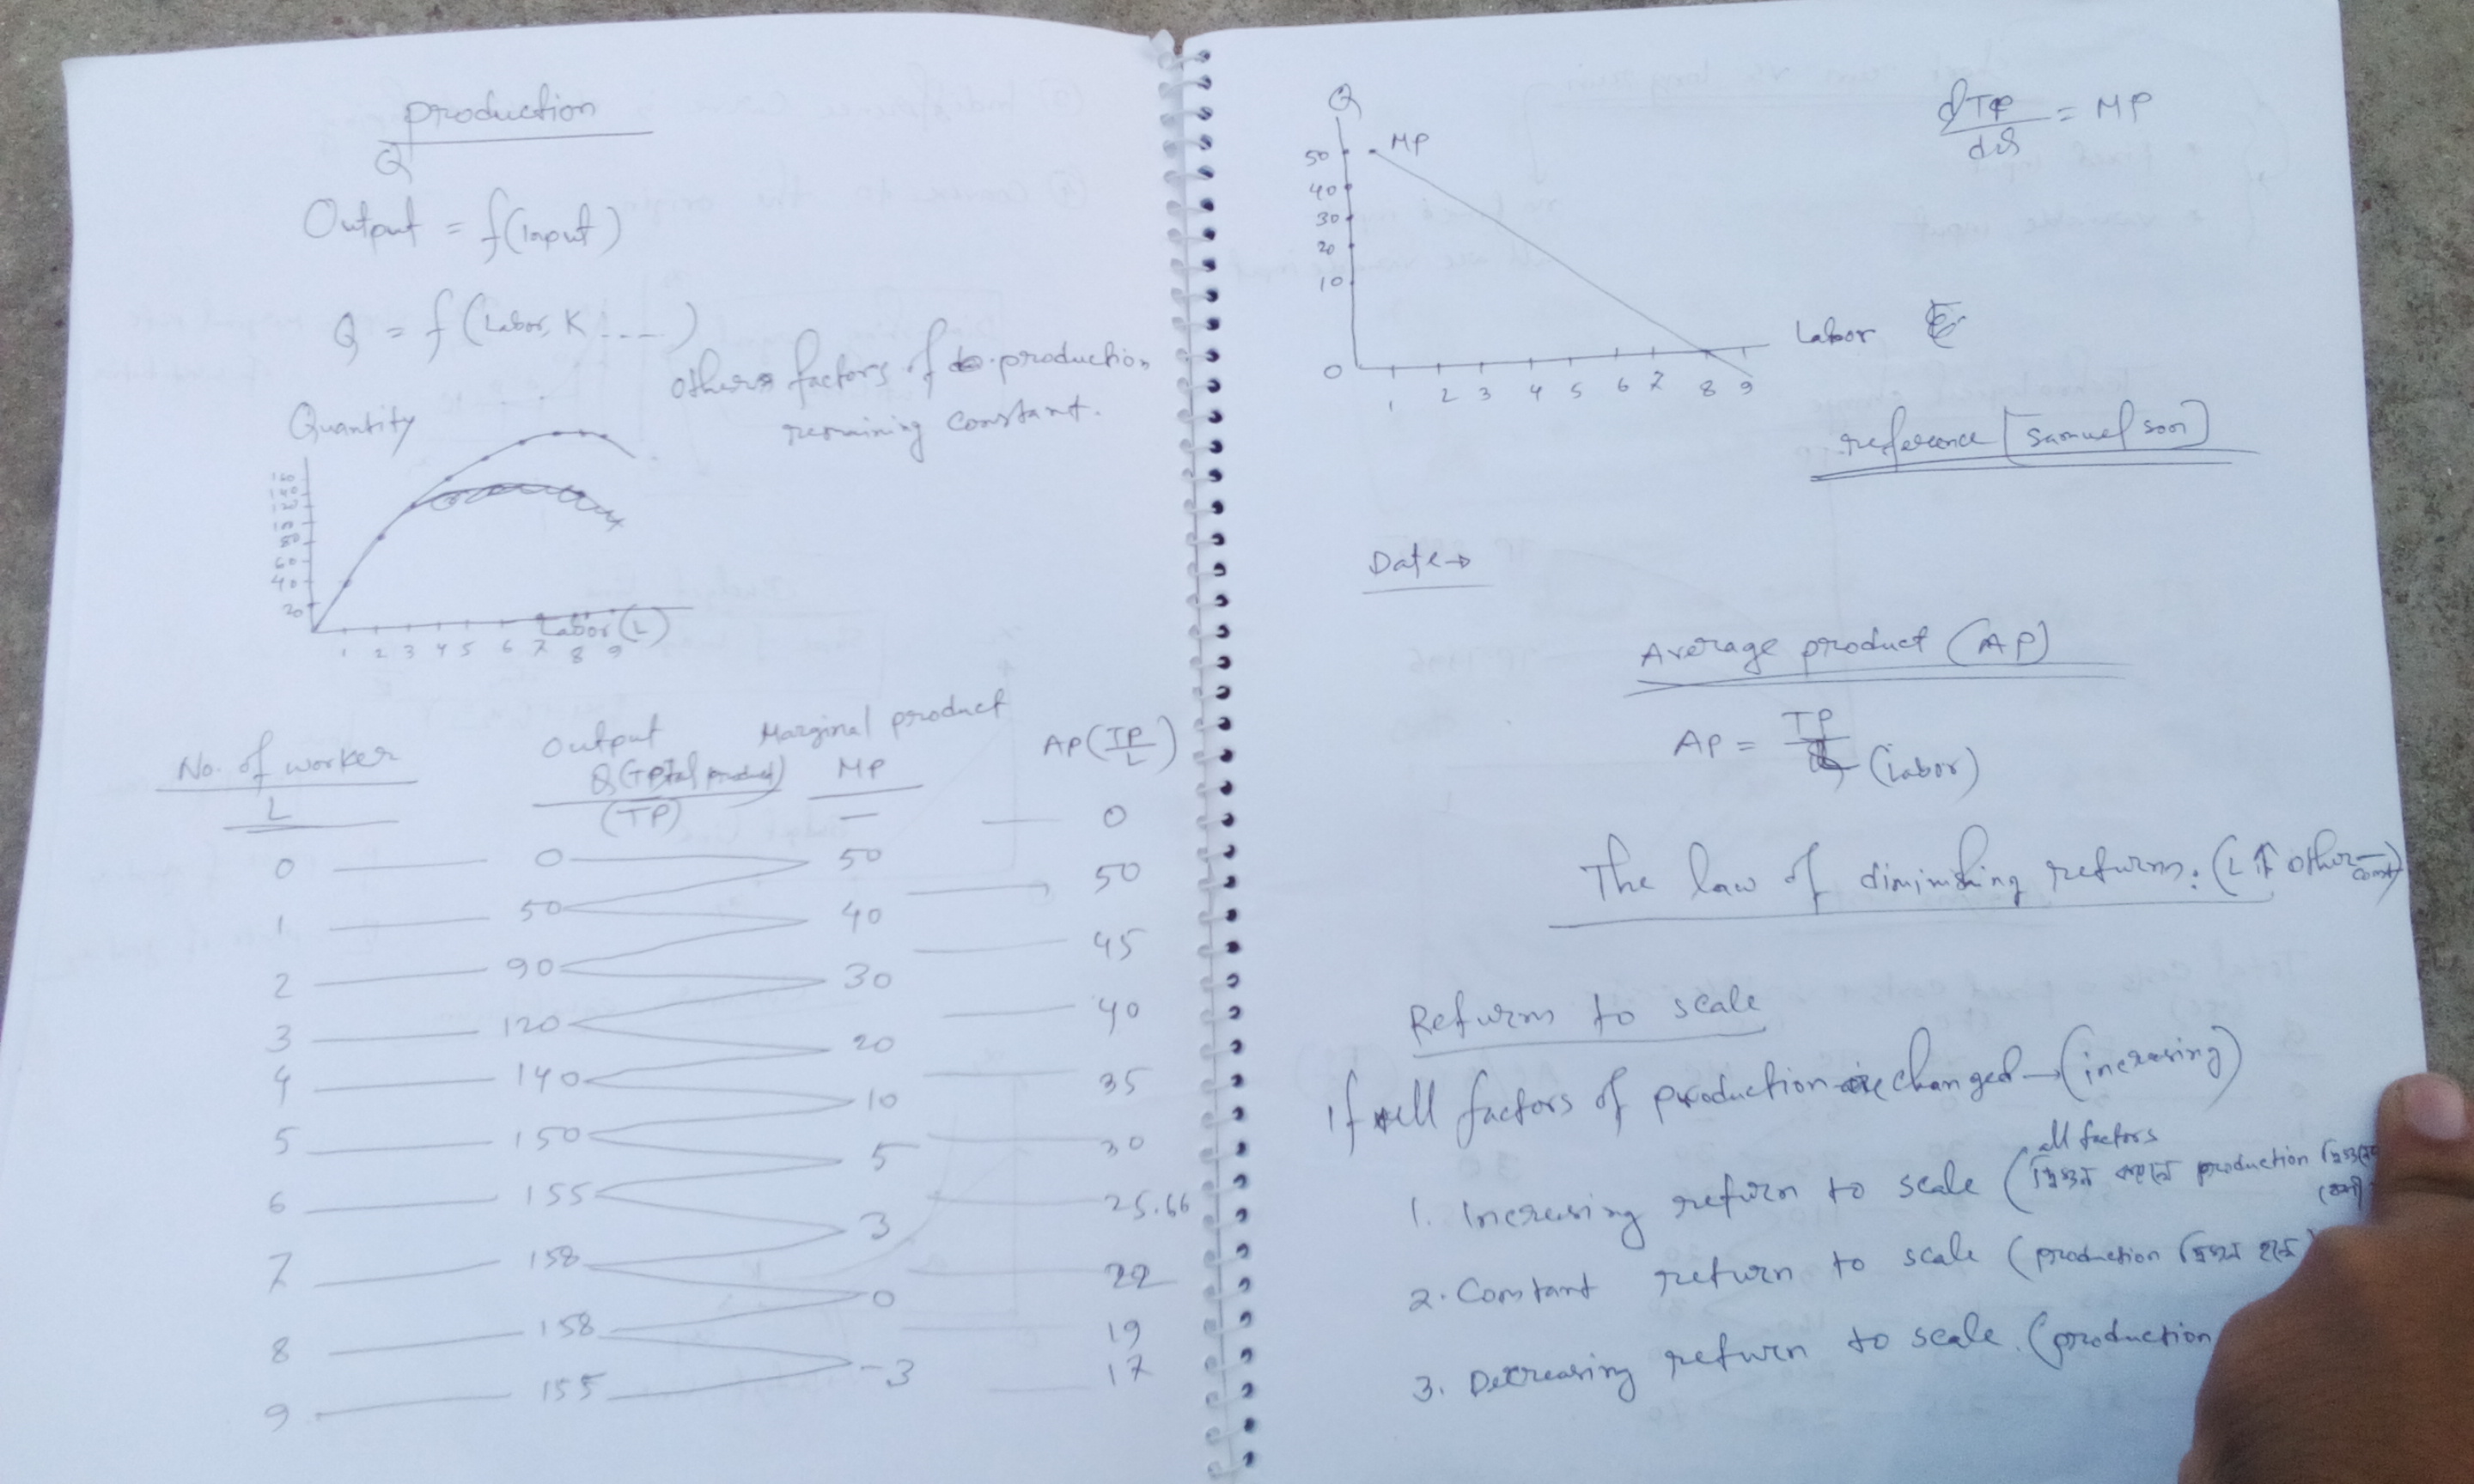 production
Q
Output = f(input)
Q = f(Labor, K ----)
others factors of production
remaining constant.
Quantity
40
20
1 2 3 4 5 6 7 8 9
Labor (L)
No. of worker Output Marginal product AP(TP/L)
L Q(Total product) (TP) MP
— 0
0 0 50 50
1 50 40 45
2 90 30 40
3 120 20 35
4 140 10 30
5 150 5 25.66
6 155 3 22
7 158 0 19
8 158 -3 17
9 155
Q
MP
50
40
30
20
10
0
1 2 3 4 5 6 7 8 9
Labor
= MP
reference [Samuel soon]
Date→
Average product (AP)
AP = TP
(Labor)
The law of diminishing returns. (L ⇑ other const)
Returns to scale
If all factors of production are changed → (increasing)
all factors
1. Increasing return to scale ( production
2. Constant return to scale (production
3. Decreasing return to scale. (production